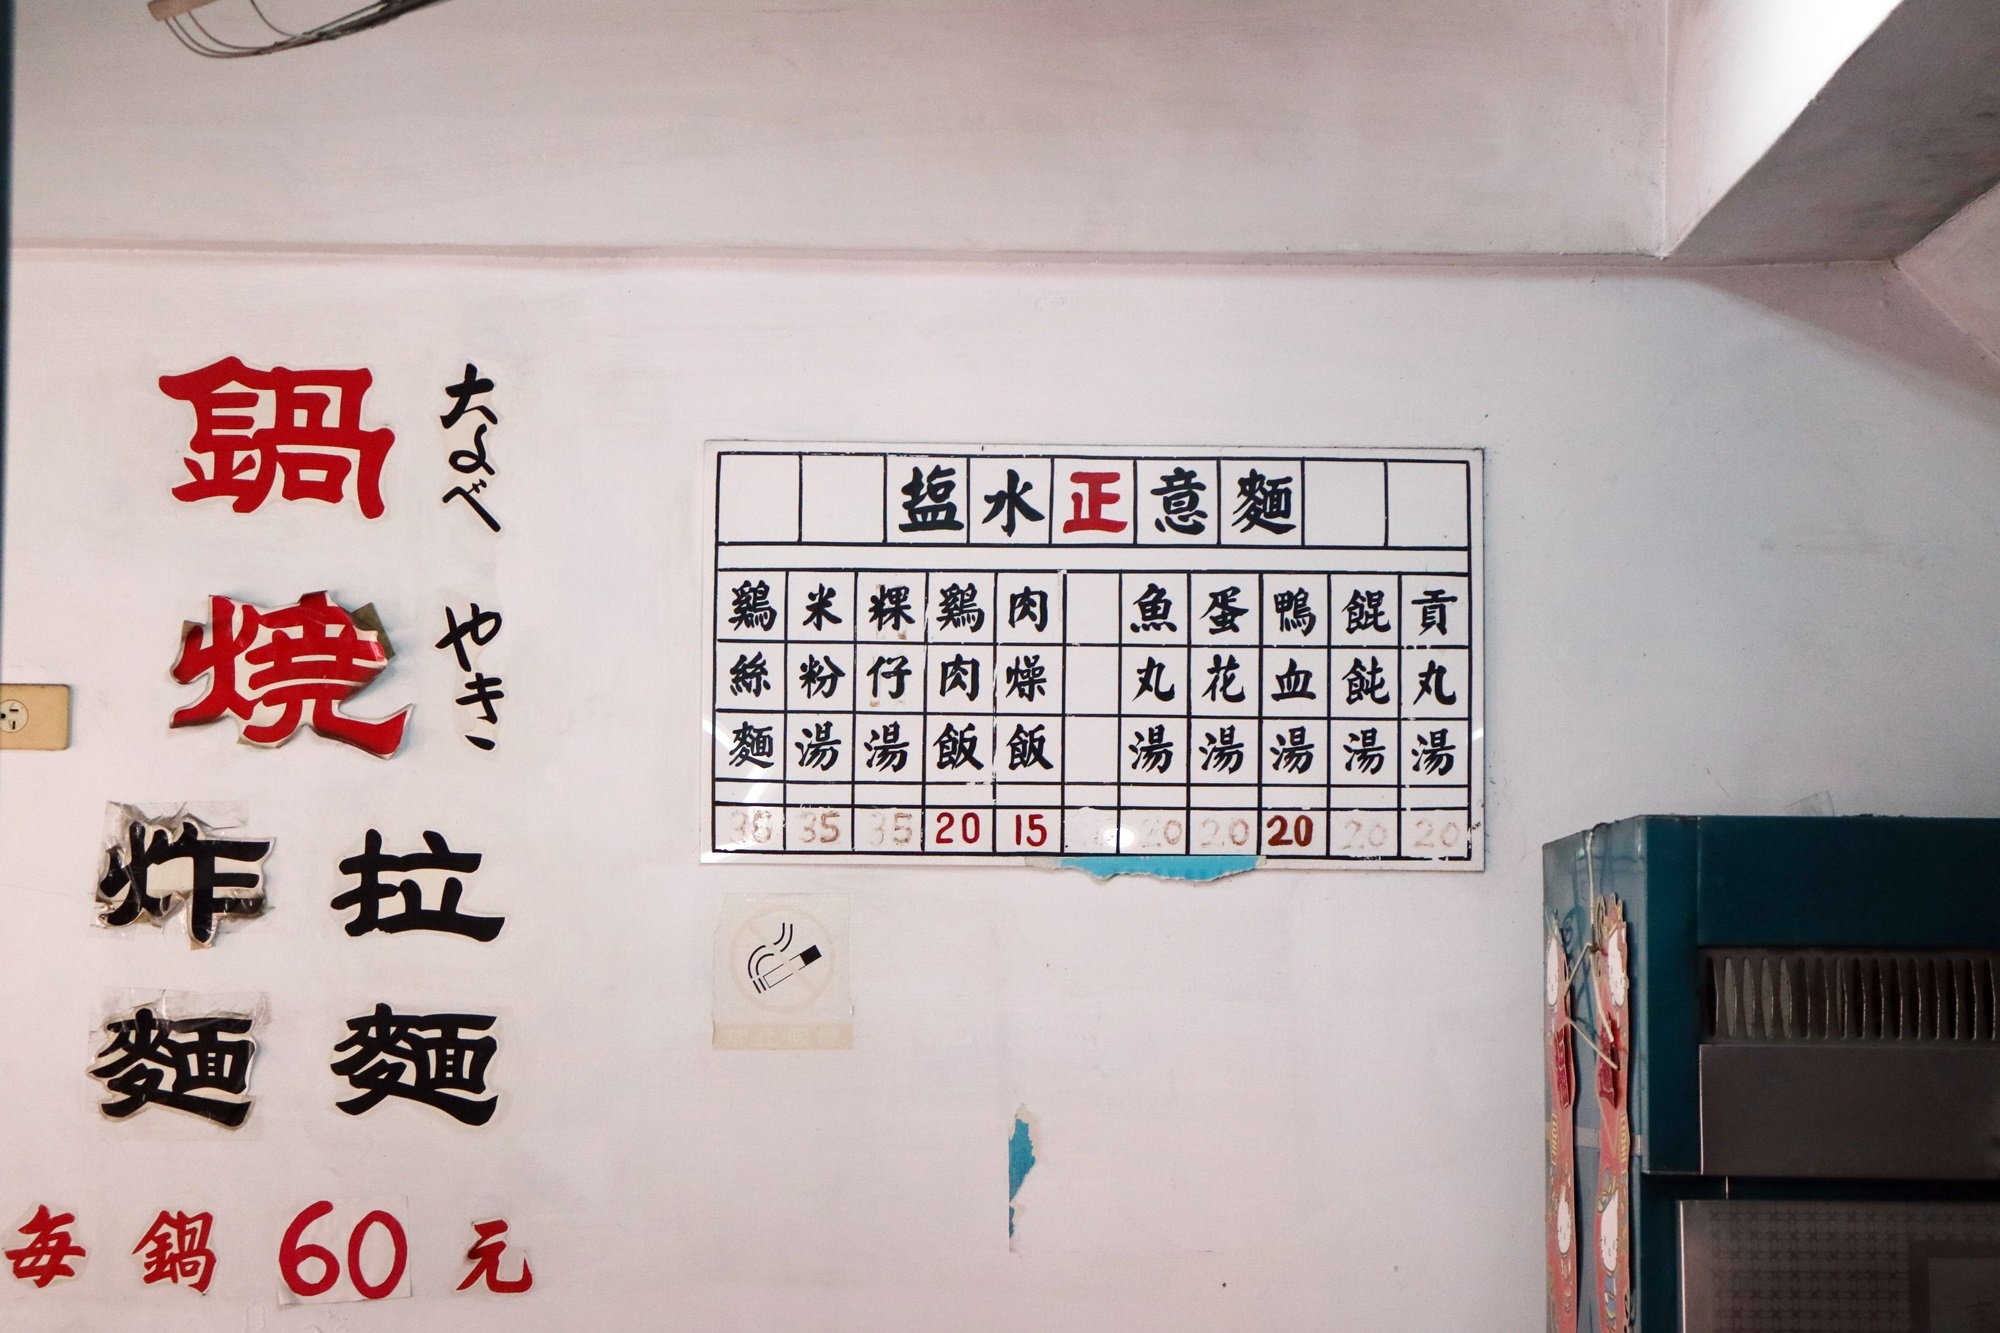 鍋燒
なべ やき
炸麵
拉麵
每鍋60元
塩水正意麵
鷄絲麵 35
米粉湯 35
粿仔湯 35
鷄肉飯 20
肉燥飯 15
魚丸湯 20
蛋花湯 20
鴨血湯 20
餛飩湯 20
貢丸湯 20